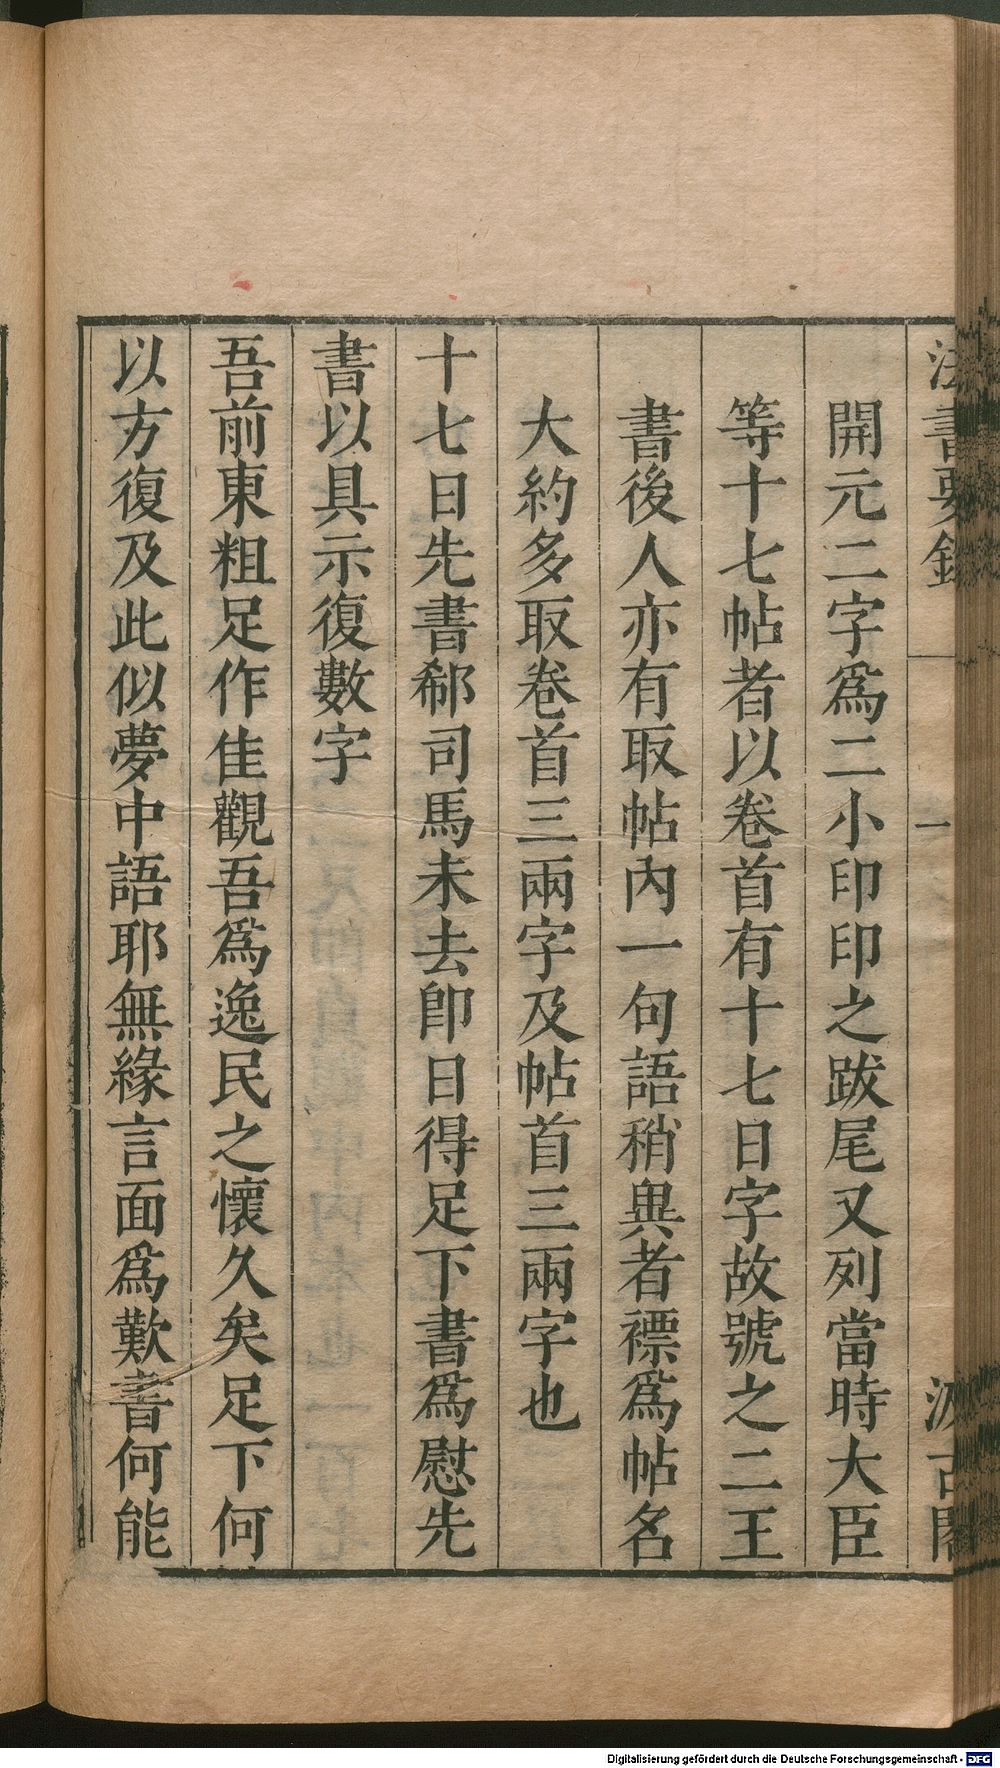 法書要錄
一
汲古閣
開元二字爲二小印印之跋尾又列當時大臣
等十七帖者以卷首有十七日字故號之二王
書後人亦有取帖內一句語稍異者褾爲帖名
大約多取卷首三兩字及帖首三兩字也
十七日先書郗司馬未去卽日得足下書爲慰先
書以具示復數字
吾前東粗足作佳觀吾爲逸民之懷久矣足下何
以方復及此似夢中語耶無緣言面爲歎書何能
Digitalisierung gefördert durch die Deutsche Forschungsgemeinschaft - DFG